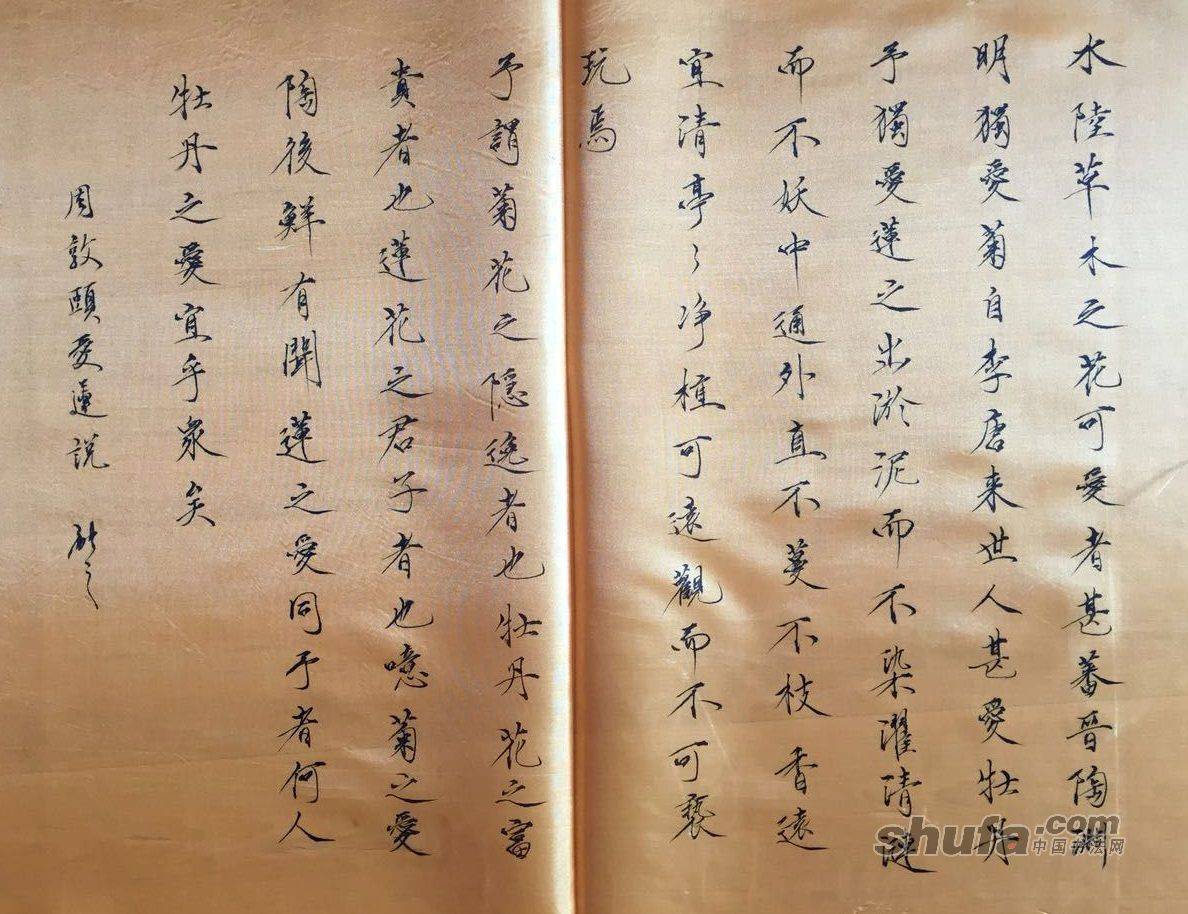 水陸草木之花可愛者甚蕃晉陶淵
明獨愛菊自李唐来世人甚愛牡丹
予獨愛蓮之出淤泥而不染濯清漣
而不妖中通外直不蔓不枝香遠
宜清亭〻净植可遠觀而不可褻
玩焉
予謂菊花之隱逸者也牡丹花之富
貴者也蓮花之君子者也噫菊之愛
陶後鮮有聞蓮之愛同予者何人
牡丹之愛宜乎衆矣
周敦頤愛蓮説
shufa.com
中国书法网